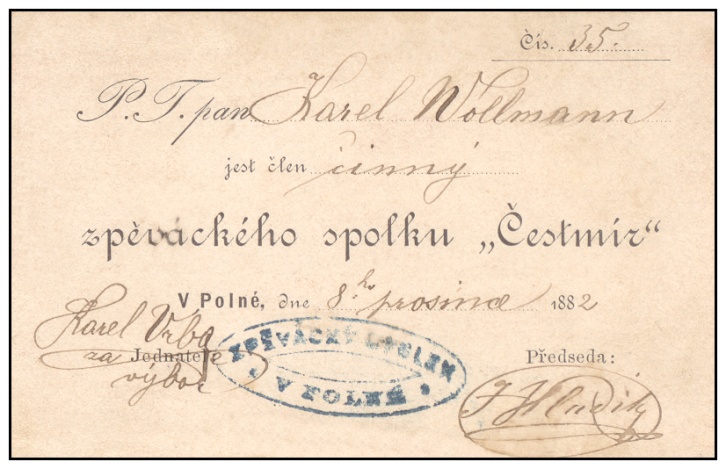 Čís. 35.
P. T. pan Karel Wollmann
jest člen činný
zpěváckého spolku „Čestmír“
V Polné, dne 8.ho prosince 1882
Karel Vrba
za Jednatele
výbor
ZPĚVÁCKÝ SPOLEK
V POLNÉ
Předseda:
J Hladík